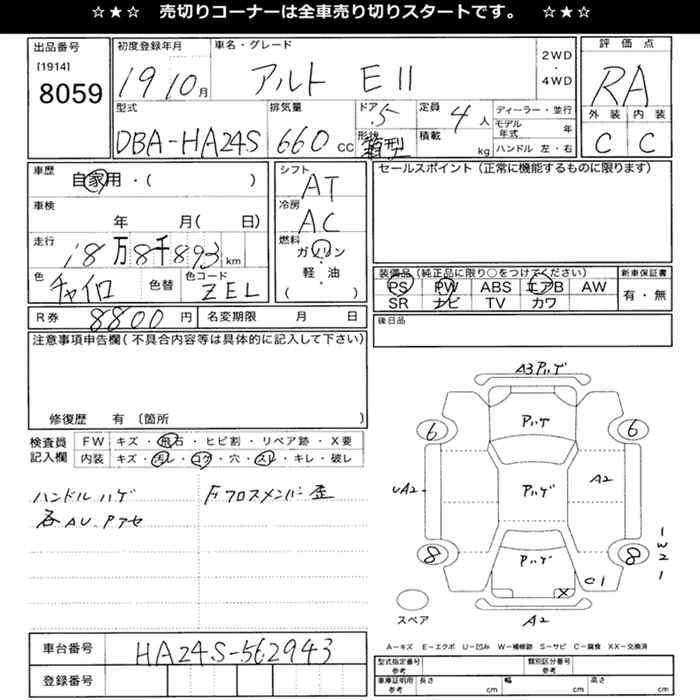 ☆★☆ 売切りコーナーは全車売り切りスタートです。 ☆★☆
出品番号
[1914]
8059
初度登録年月
19 10月
車名・グレード
アルト EⅡ
2WD
・
4WD
評価点
RA
外装 内装
C C
型式
DBA-HA24S
排気量
660 CC
ドア 5
形状
箱型
定員 4人
積載 kg
ディーラー・並行
モデル年式 年
ハンドル 左・右
車歴
自家用・( )
車検
年 月( 日)
走行
18万8千893 km
色
チャイロ
色替
色コード
ZEL
シフト
AT
冷房
AC
燃料
ガソリン
・
軽・油
( )
セールスポイント(正常に機能するものに限ります)
装備品(純正品に限り○をつけてください)
PS PW ABS エアB AW
SR ナビ TV カワ
新車保証書
有・無
R券 8800 円
名変期限 月 日
後日品
注意事項申告欄(不具合内容等は具体的に記入して下さい)
修復歴 有〔箇所
検査員記入欄
FW キズ・飛石・ヒビ割・リペア跡・X要
内装 キズ・汚レ・コゲ・穴・スレ・キレ・破レ
ハンドル ハゲ
各AU Pアセ
Fクロスメンバー歪
A3 Pハゲ
Pハゲ
6 6
UA2
Pハゲ
A2
8 8
Pハゲ
1
W
2
1
C1
X
A2
スペア
A-キズ E-エクボ U-凹み W-補修跡 S-サビ C-腐食 XX-交換済
車台番号
HA24S-562943
登録番号
型式指定番号
参考
類別区分番号
参考
車庫証明用
参考
長さ cm
幅 cm
高さ cm